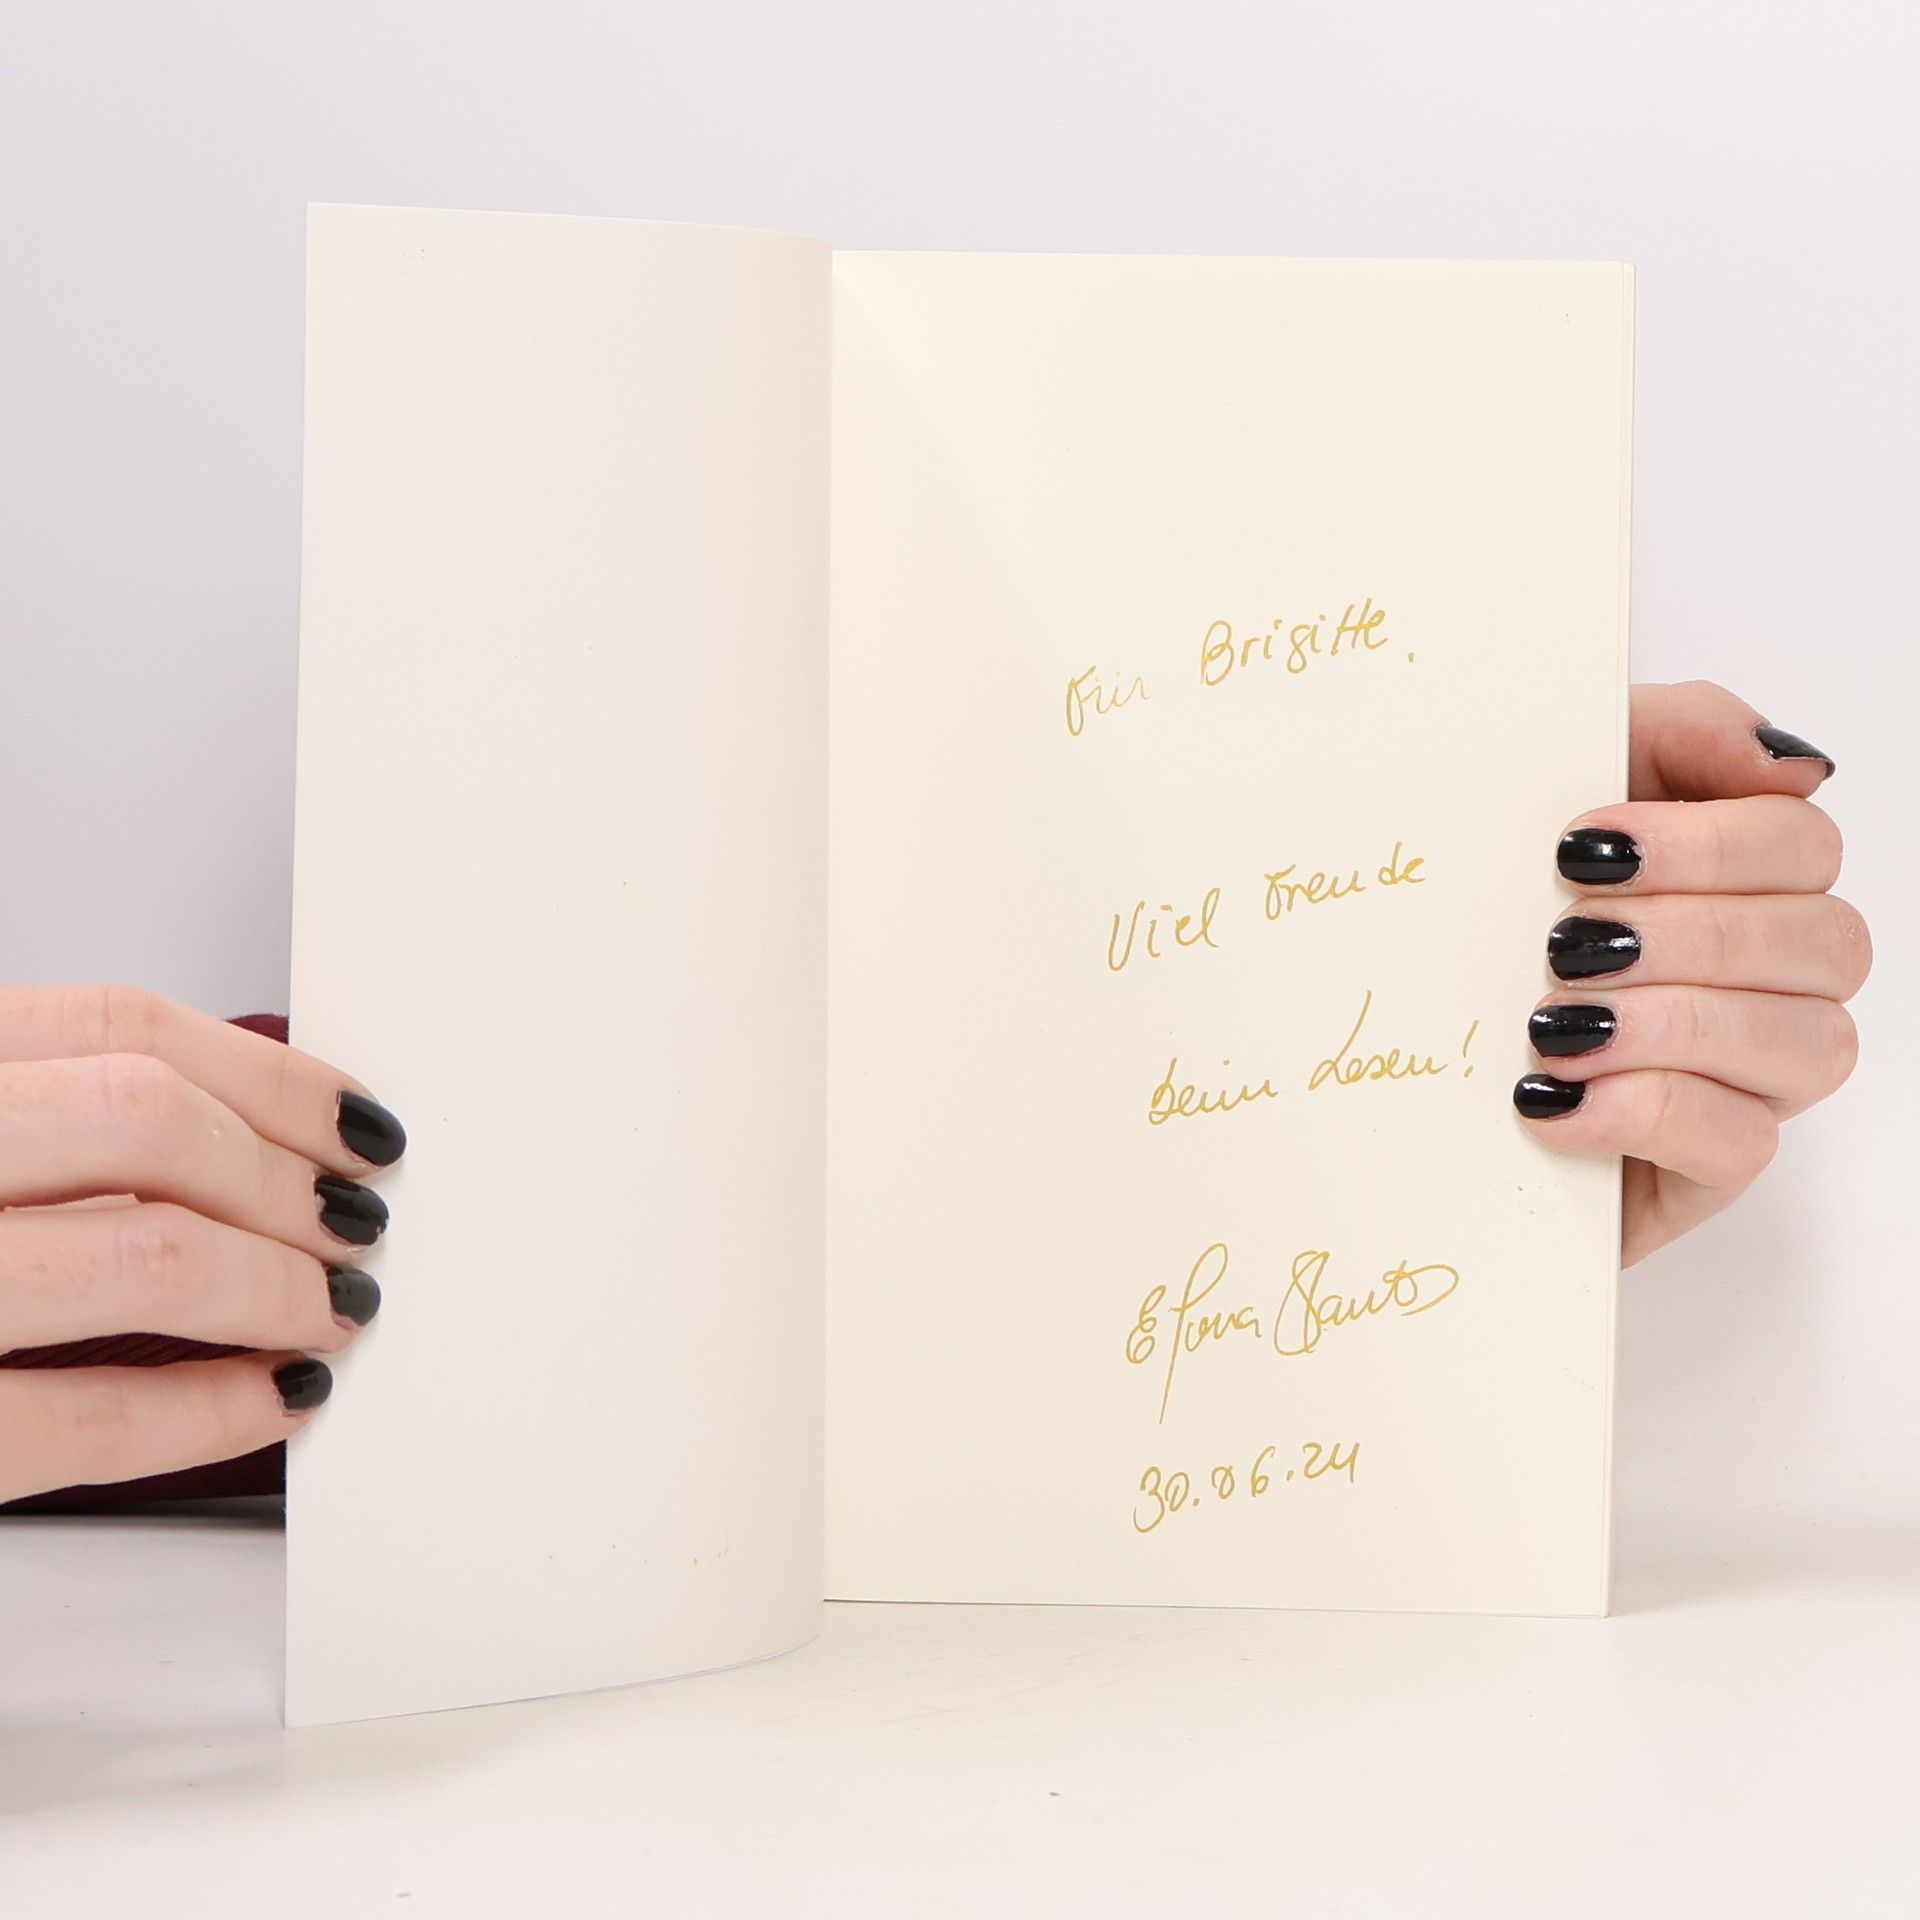 Für Brigitte.
Viel Freude
beim Lesen!
30.06.24